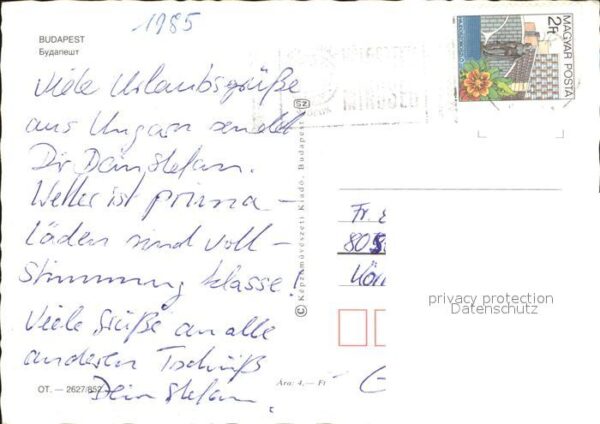 1985
BUDAPEST
Будапешт
Viele Urlaubsgrüße
aus Ungarn sendet
Dir Dein Stefan.
Wetter ist prima –
Läden sind voll –
Stimmung klasse!
Viele Grüße an alle
anderen Tschüß
Dein Stefan.
OT. — 2627/852
Ára: 4,— Ft
© Képzőművészeti Kiadó, Budapest
SZ
2Ft
MAGYAR POSTA
Fr.
805
Kön
privacy protection
Datenschutz